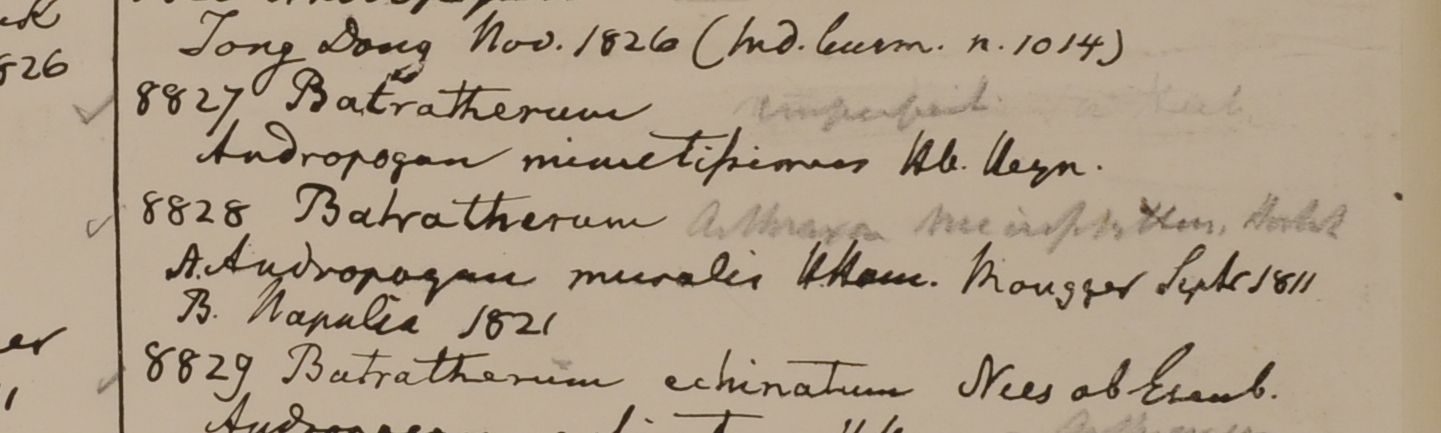 826
Tong Dong Nov. 1826 (Ind. burm. n. 1014)
8827 Batratherum imperfect
Andropogon minutissimus Hb. Heyn.
8828 Batratherum Arthraxon microphyllus, Hochst
A. Andropogon muralis HHam. Mougger Septr 1811
B. Napalia 1821
8829 Batratherum echinatum Nees ab Esenb.
er